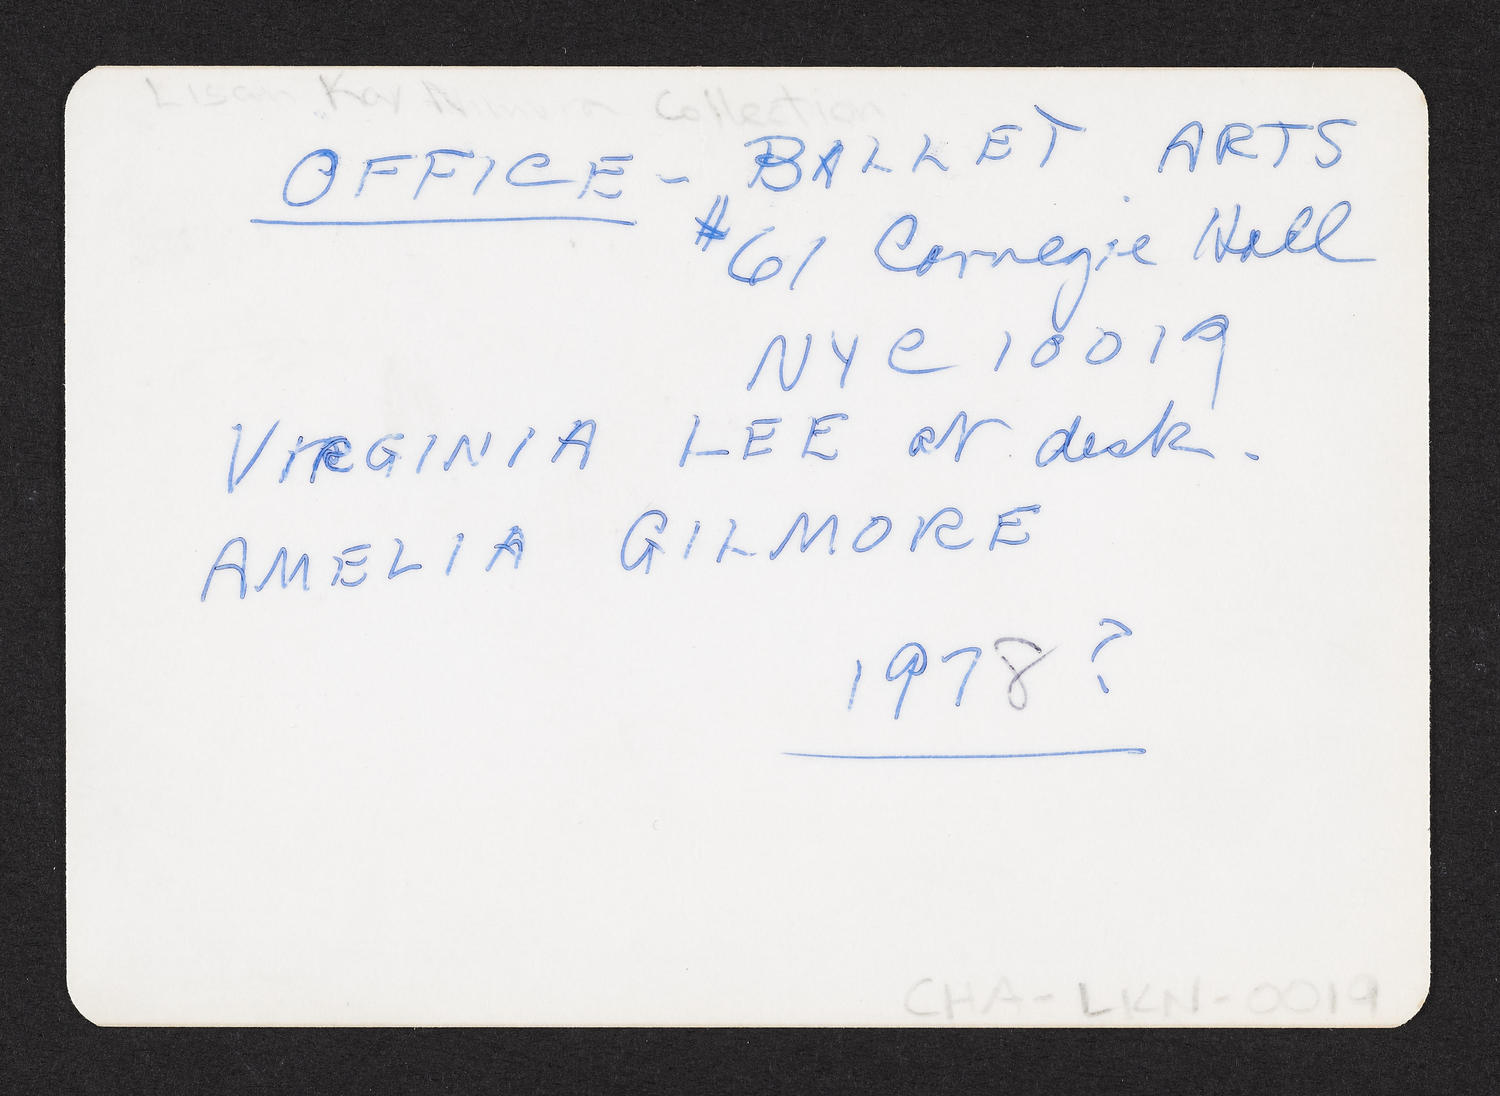 Lisan Kay Nimura Collection
OFFICE - BALLET ARTS
#61 Carnegie Hall
NYC 10019
VIRGINIA LEE at desk.
AMELIA GILMORE
1978?
CHA-LKN-0019